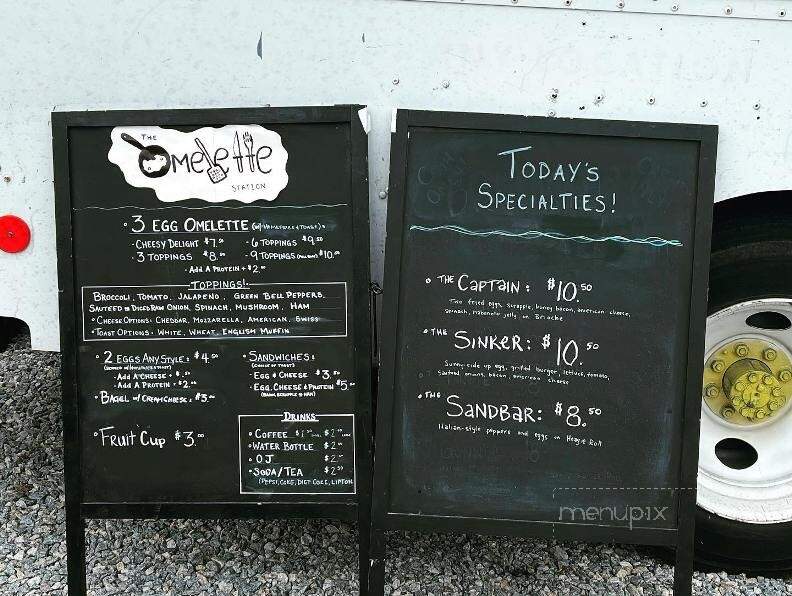 THE
Omelette
STATION
3 EGG OMELETTE (W/ HOMEFRIES & TOAST):
· CHEESY DELIGHT $7.
· 6 TOPPINGS $9.50
· 3 TOPPINGS $8.
· 9 TOPPINGS $10.00
· ADD A PROTEIN + $2.00
TOPPINGS:
BROCCOLI, TOMATO, JALAPENO, GREEN BELL PEPPERS,
SAUTEED OR DICED RAW ONION, SPINACH, MUSHROOM, HAM
· CHEESE OPTIONS: CHEDDAR, MOZZARELLA, AMERICAN, SWISS
· TOAST OPTIONS: WHITE, WHEAT, ENGLISH MUFFIN
· 2 EGGS ANY STYLE: $4.50
· ADD A CHEESE +
· ADD A PROTEIN + $2.00
· BAGEL W/ CREAM CHEESE: $3.00
· FRUIT CUP $3.00
· SANDWICHES:
(CHOICE OF TOAST)
· EGG & CHEESE $3.50
· EGG, CHEESE & PROTEIN $5.00
(BACON, SCRAPPLE or HAM)
DRINKS
· COFFEE $1. $2.
· WATER BOTTLE $2.
· OJ $2.
· SODA/TEA $2.50
(PEPSI, COKE, DIET COKE, LIPTON)
TODAY'S
SPECIALTIES!
· THE CAPTAIN: $10.50
Two fried eggs, scrapple, honey bacon, american cheese,
spinach, habanero jelly on Brioche
· THE SINKER: $10.50
Sunny side up egg, grilled burger, lettuce, tomato,
sauteed onions, bacon, american cheese
· THE SANDBAR: $8.50
Italian-style peppers and eggs on Hoagie Roll
menupix